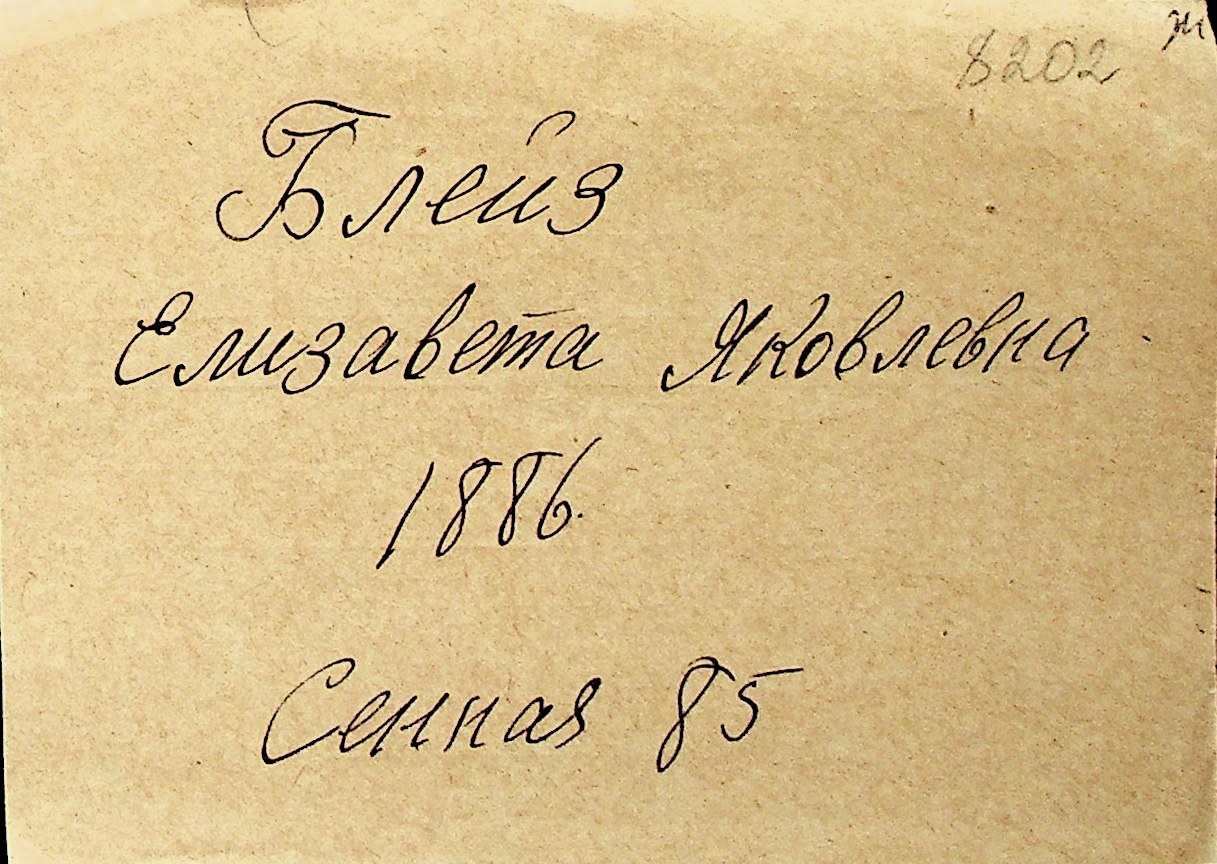 8202
ж
Блейз
Елизавета Яковлевна
1886.
Сенная 85